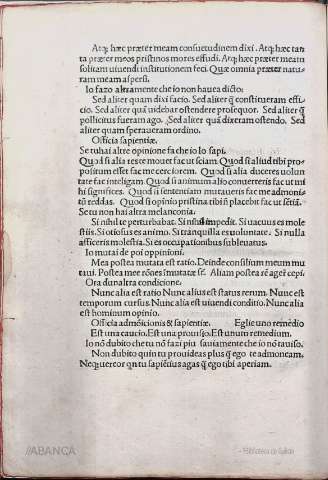 Atq; hæc præter meam consuetudinem dixi. Atq; hæc tan
ta præter meos pristinos mores effudi. Atq; hæc præter meam
solitam uiuendi institutionem feci. Quæ omnia præter natu-
ram meam aspersi.
Io fazo altramente che io non haueа dicto:
Sed aliter quam dixi facio. Sed aliter q̃ constitueram effi-
cio. Sed aliter quã uidebar ostendere prosequor. Sed aliter q̃
pollicitus fueram ago. Sed aliter quã dixeram ostendo. Sed
aliter quam speraueram ordino.
Officia sapientiæ.
Se tu hai altre opinione fa che io lo sapi.
Quod si alia res te mouet fac ut sciam. Quod si aliud tibi pro-
positum esset fac me cerciorem. Quod si alia duceres uolun
tate fac inteligam. Quod si animum alio conuerteris fac ut mi
hi significes. Quod si sententiam mutaueris fac me admoni-
tũ reddas. Quod si opinio pristina tibi ñ placebit fac ut sẽtiã.
Se tu non hai altra melanconia.
Si nihil te perturbabat. Si nihil impedit. Si uacuus es mole
stiis. Si otiosus es animo. Si tranquilla es uoluntate. Si nulla
afficeris molestia. Si es occupationibus subleuatus.
Io mutai de poi oppinioni.
Mea postea mutata est ratio. Deinde consilium meum mu
taui. Postea mee rõnes ĩmutatæ sẽ. Aliam postea rẽ agere cepi
Ora da naltra condicione.
Nunc alia est ratio Nunc alius est status rerum. Nunc est
temporum cursus. Nunc alia est uiuendi conditio. Nunc alia
est hominum opinio.
Officia admõicionis & sapientiæ. Egli e uno remedio
Est una caucio. Est una prouisio. Est unum remedium.
Io nõ dubito che tu nõ fazi piu sauiamente che io nõ rauiso.
Non dubito quin tu prouideas plus q̃ ego te admoneam.
Neq; uereor qn tu sapiẽtius agas q̃ ego tibi aperiam.
//ABANCA
Biblioteca de Galicia